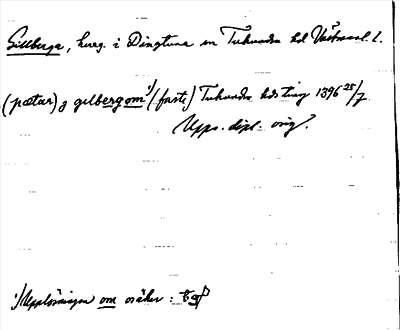 Gillberga, hrg. i Dingtuna sn Tuhundra hd Västmanl. l.
(pætar) j gilbergom 1) (fasti) Tuhundra hds ting 1396 25/7
Upps. dipl. orig.
1) Upplösningen om osäker :